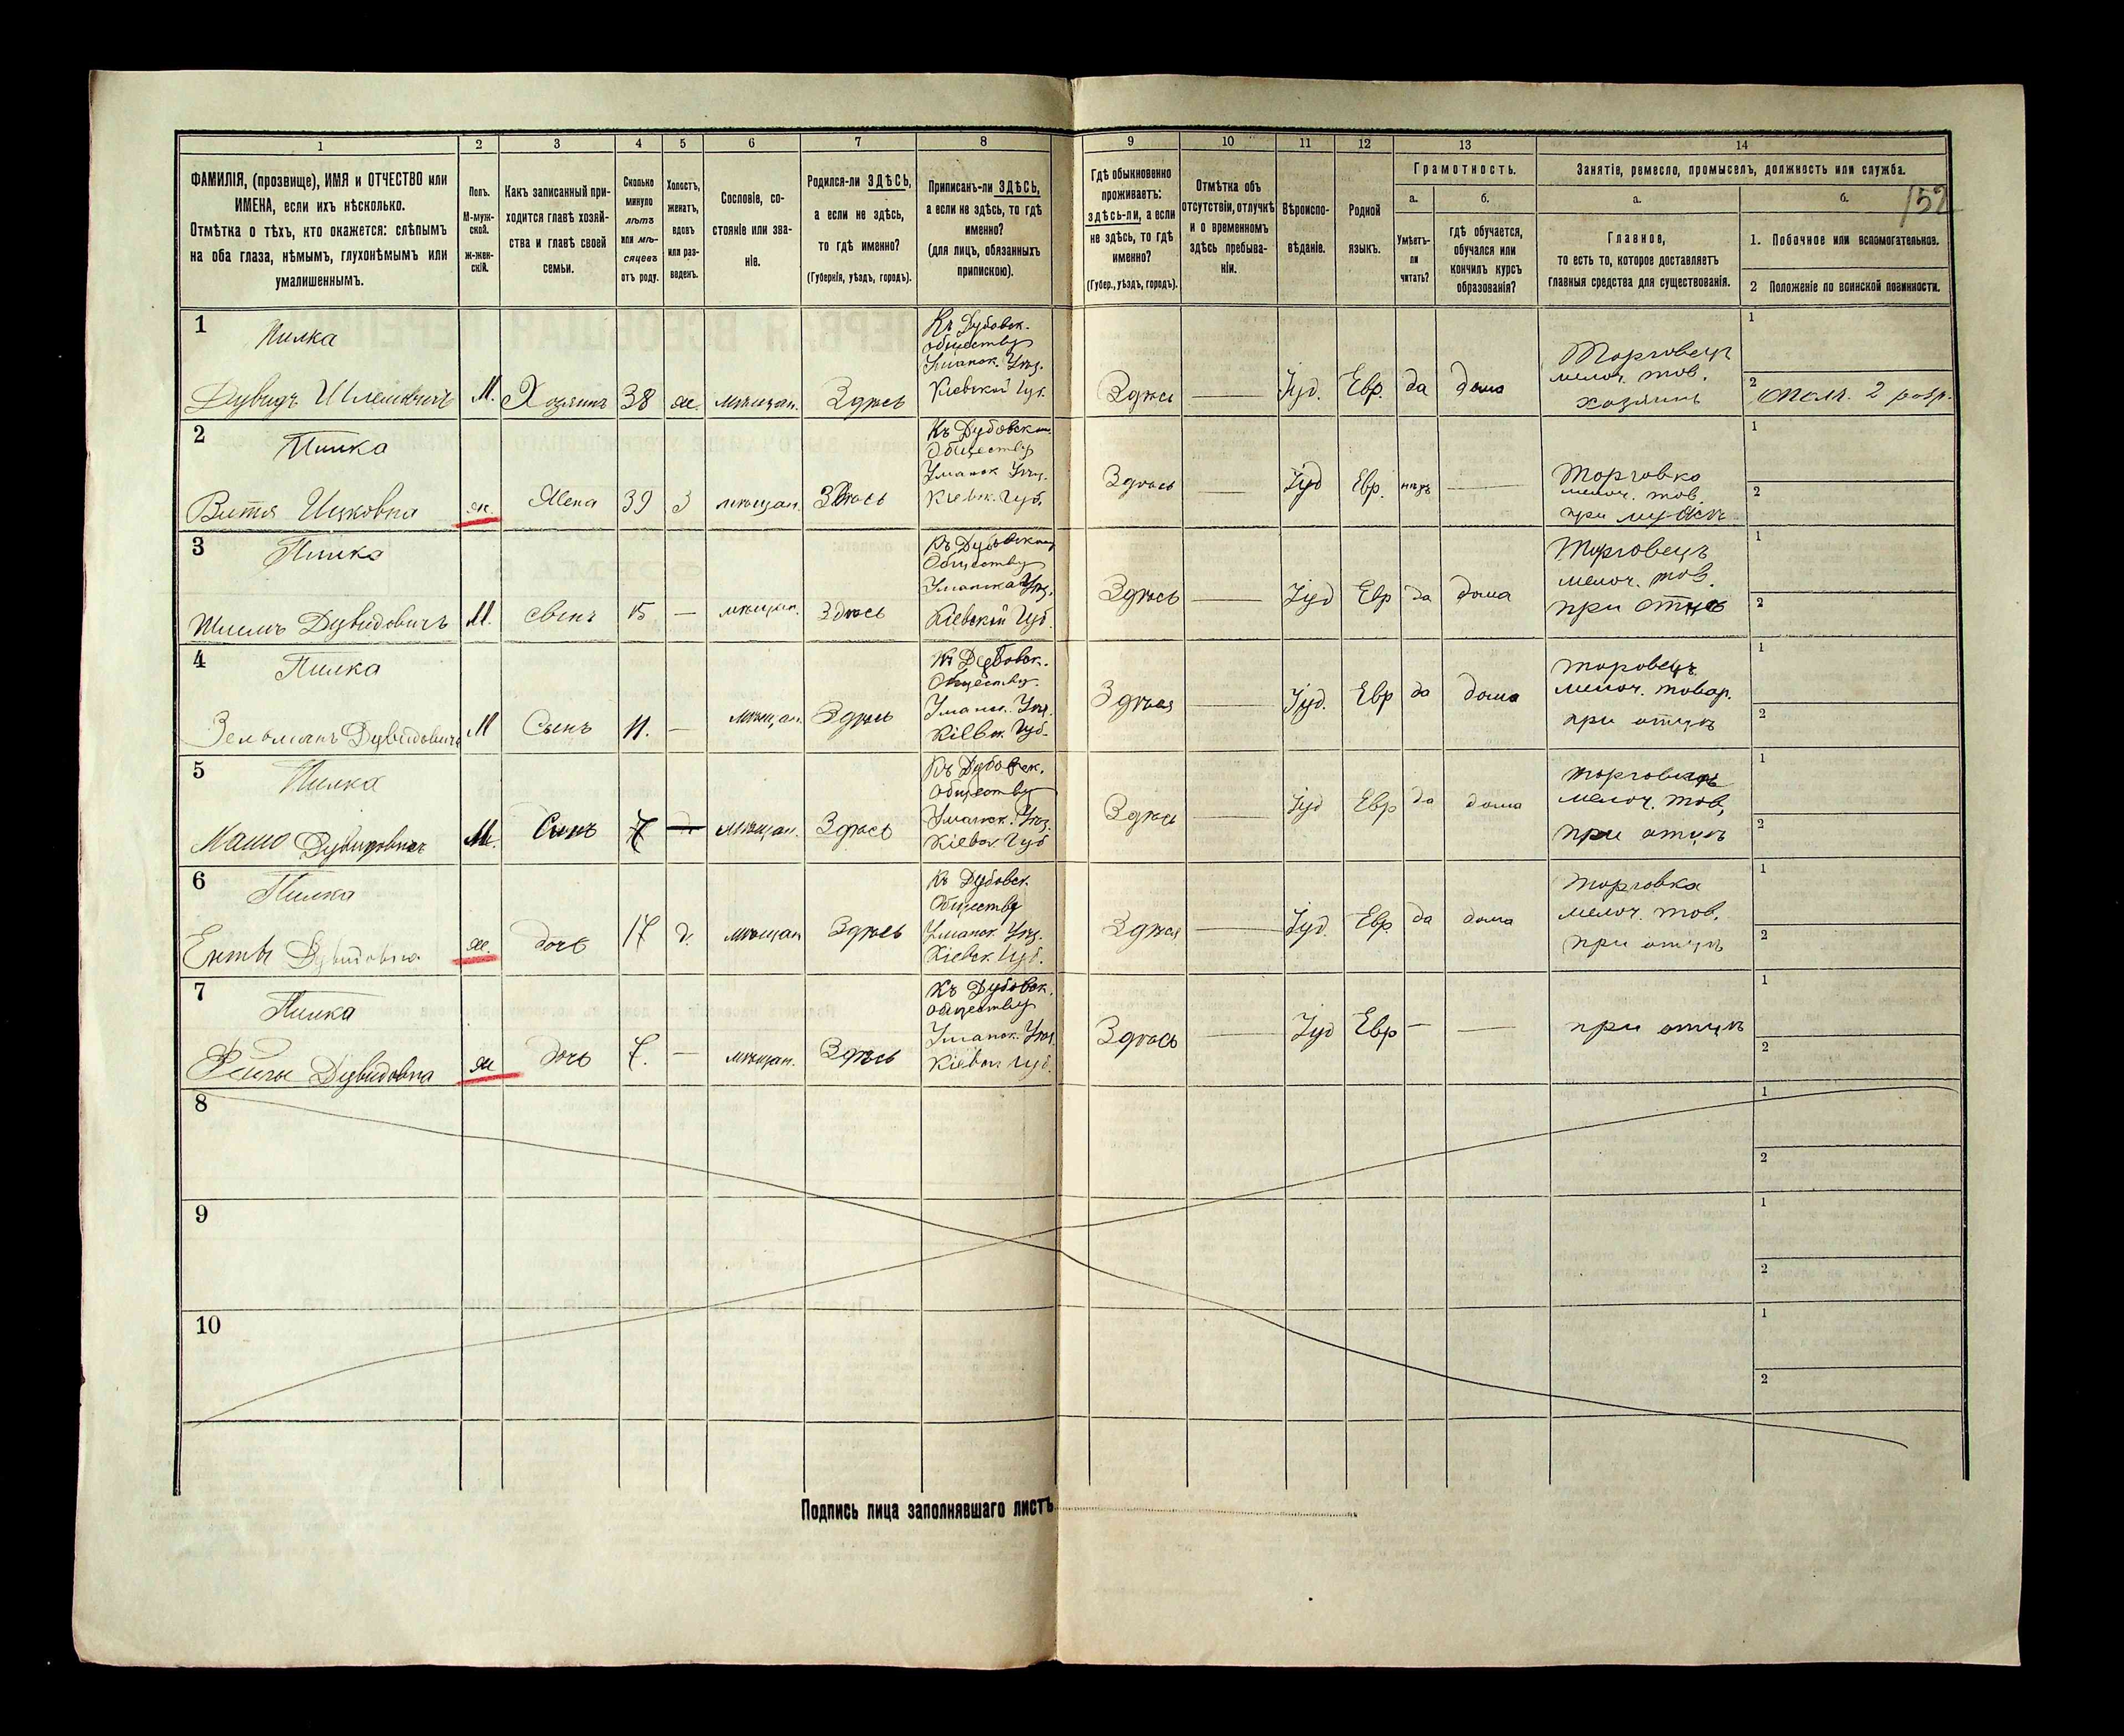 1
2
3
4
5
6
7
8
9
10
11
12
13
14
ФАМИЛІЯ, (прозвище), ИМЯ и ОТЧЕСТВО или
ИМЕНА, если ихъ нѣсколько.
Отмѣтка о тѣхъ, кто окажется: слѣпымъ
на оба глаза, нѣмымъ, глухонѣмымъ или
умалишеннымъ.
Полъ.
М-муж-
ской.
ж-жен-
скій.
Какъ записанный при-
ходится главѣ хозяй-
ства и главѣ своей
семьи.
Сколько
минуло
лѣтъ
или мѣ-
сяцевъ
отъ роду.
Холостъ,
женатъ,
вдовъ
или раз-
веденъ.
Сословіе, со-
стояніе или зва-
ніе.
Родился-ли ЗДѢСЬ,
а если не здѣсь,
то гдѣ именно?
(Губернія, уѣздъ, городъ).
Приписанъ-ли ЗДѢСЬ,
а если не здѣсь, то гдѣ
именно?
(для лицъ, обязанныхъ
припискою).
Гдѣ обыкновенно
проживаетъ:
здѣсь-ли, а если
не здѣсь, то гдѣ
именно?
(Губер., уѣздъ, городъ).
Отмѣтка объ
отсутствіи, отлучкѣ
и о временномъ
здѣсь пребыва-
ніи.
Вѣроиспо-
вѣданіе.
Родной
языкъ.
Грамотность.
а.
Умѣетъ-
ли
читать?
б.
гдѣ обучается,
обучался или
кончилъ курсъ
образованія?
Занятіе, ремесло, промыселъ, должность или служба.
а.
Главное,
то есть то, которое доставляетъ
главныя средства для существованія.
б.
152
1. Побочное или вспомогательное.
2 Положеніе по воинской повинности.
1
Пилка
Дувидъ
М.
Хозяинъ
38
ж.
мѣщан.
Здѣсь
Къ Дубовск.
обществу
Уманск. Уѣз.
Кіевской Губ.
Здѣсь
Іуд.
Евр.
да
дома
Торговецъ
мелоч. тов.
хозяинъ
1
2 Ополч. 2 разр.
2
Пилка
Ицковна
ж.
Жена
39
З
мѣщан.
Здѣсь
Къ Дубовском.
Обществу
Уманск Уѣз.
Кіевск. Губ.
Здѣсь
Іуд
Евр.
нѣтъ
Торговка
мелоч. тов.
при мужѣ
1
2
3
Пилка
Дувидовичъ
М.
сынъ
15
—
мѣщан.
Здѣсь
Къ Дубовском
Обществу
Уманска Уѣз.
Кіевской Губ.
Здѣсь
Іуд
Евр
да
дома
Торговецъ
мелоч. тов.
при отцѣ
1
2
4
Пилка
Дувидовичъ
М
Сынъ
11.
—
мѣщан.
Здѣсь
Къ Дубовск.
Обществу
Уманск. Уѣз.
Кіевск. Губ.
Здѣся
Іуд.
Евр
да
дома
торовецъ
мелоч. товар.
при отцѣ
1
2
5
Пилка
Дувидовичъ
М.
Сынъ
7
мѣщан.
Здѣсь
Къ Дубовск.
Обществу
Уманск. Уѣз.
Кіевск. Губ
Здѣсь
Іуд
Евр
да
дома
торговецъ
мелоч. тов,
при отцѣ
1
2
6
Пилка
Дувидовна
ж.
дочь
17
д.
мѣщан
Здѣсь
Къ Дубовск.
Обществу
Уманск Уѣз.
Кіевск. Губ.
Здѣся
Іуд.
Евр.
да
дома
торговка
мелоч. тов.
при отцѣ
1
2
7
Пилка
Дувидовна
ж
дочь
7.
—
мѣщан.
Здѣсь
Къ Дубовск.
обществу
Уманск. Уѣз.
Кіевск. Губ.
Здѣсь
Іуд
Евр
—
при отцѣ
1
2
8
1
2
9
1
2
10
1
2
Подпись лица заполнявшаго листъ